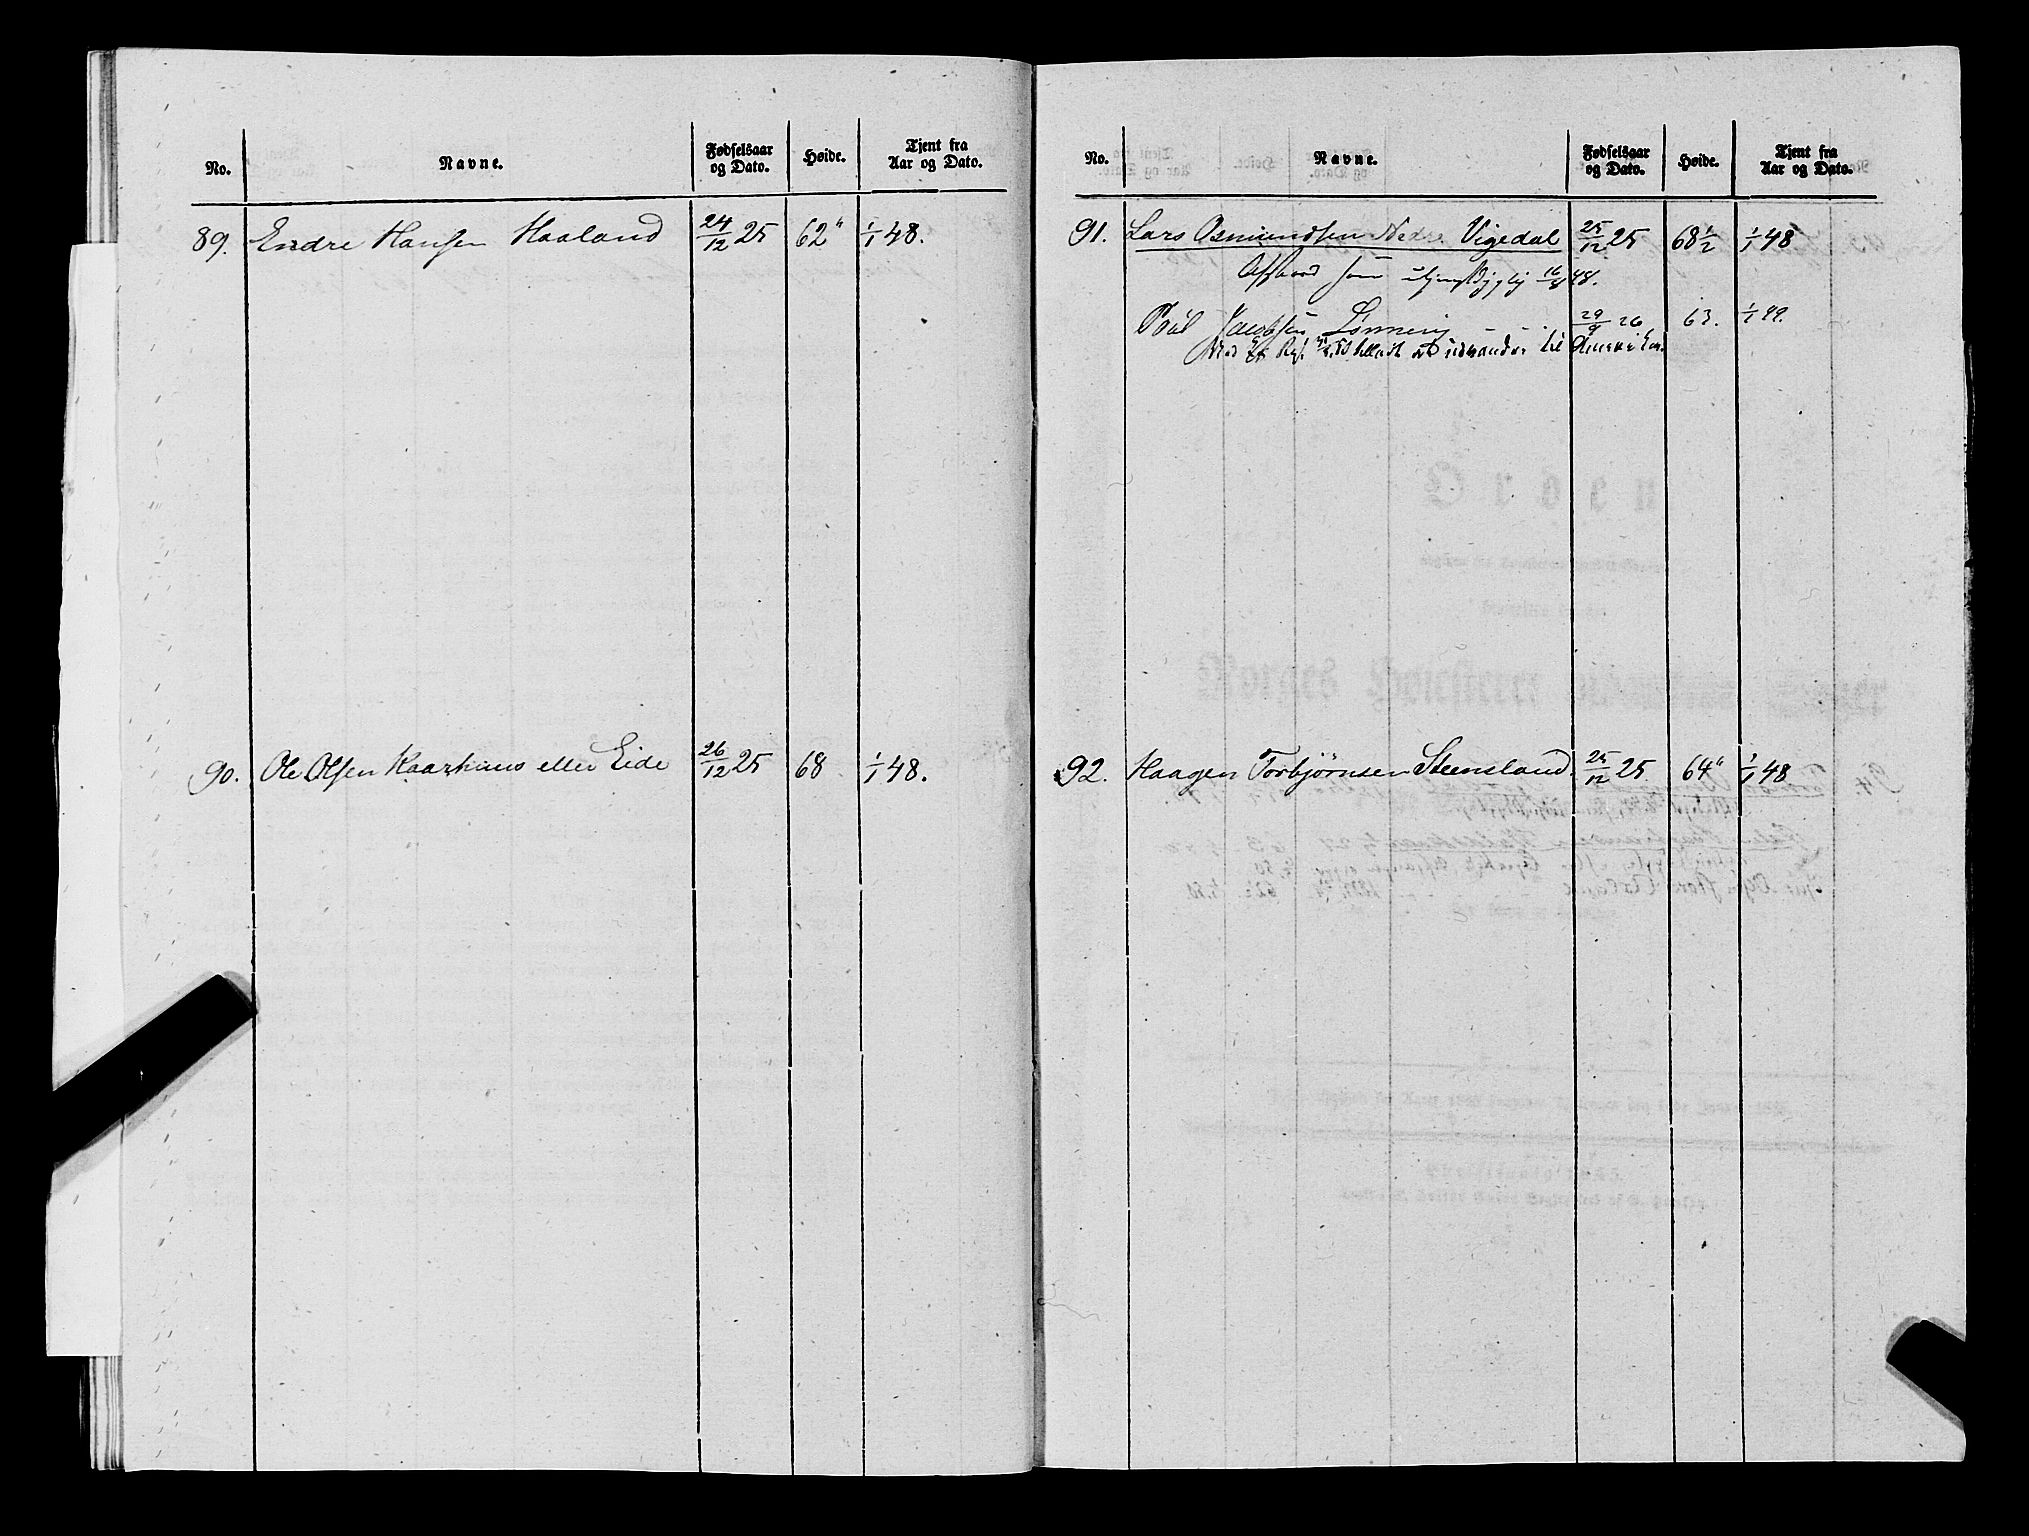 No. Navne. Fødselsaar og Dato. Høide. Tjent fra Aar og Dato.
89. Endre Hansen Haaland 24/12 25 62" 1/1 48.
90. Ole Olsen Kaarhuus eller Eide 26/12 25 68 1/1 48.
No. Navne. Fødselsaar og Dato. Høide. Tjent fra Aar og Dato.
91. Lars Osmundsen Nedre Vigedal 25/12 25 68 1/2 1/1 48
som 48.
Jacobsen Lønning 29/9 26 63. 1/1 49.
Med at udvandre til Amerika.
92. Haagen Torbjørnsen Steensland. 25/12 25 64" 1/1 48